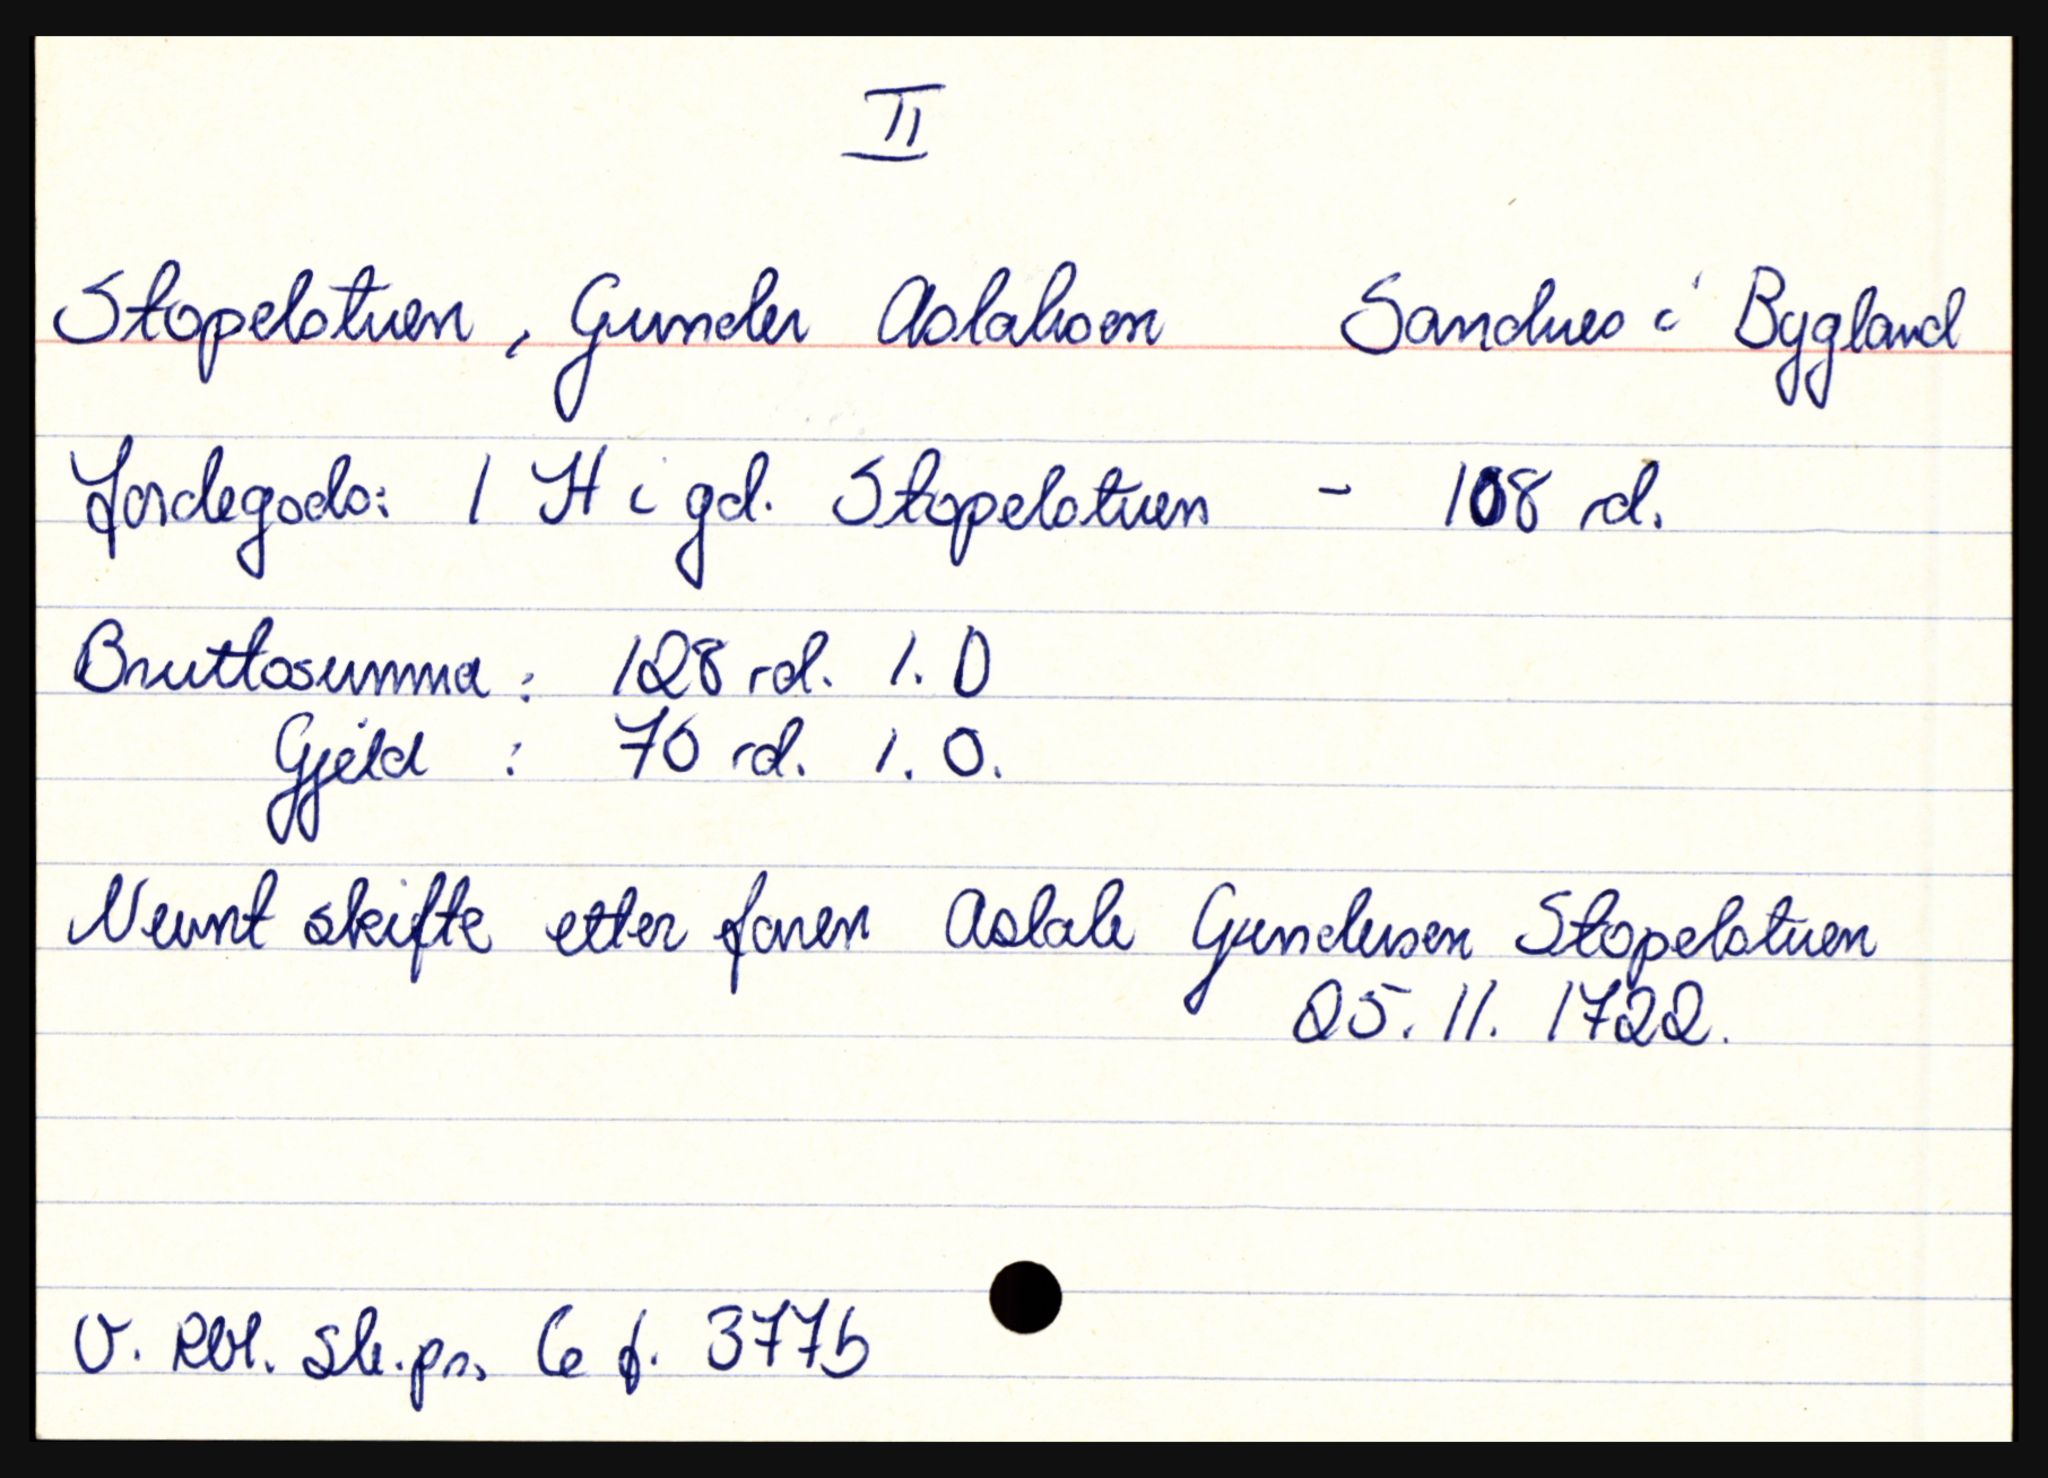 II
Stopelstuen, Gunder Aslaksen Sandnes i Bygland
Jordegods: 1 H i gd. Stopelstuen - 108 rd.
Bruttosumma: 128 rd. 1. 0
Gjeld: 70 rd. 1. 0.
Nevnt skifte etter faren Aslak Gundersen Stopelstuen
25. 11. 1722.
V. Rbl. sk.pr. 6 f. 377b